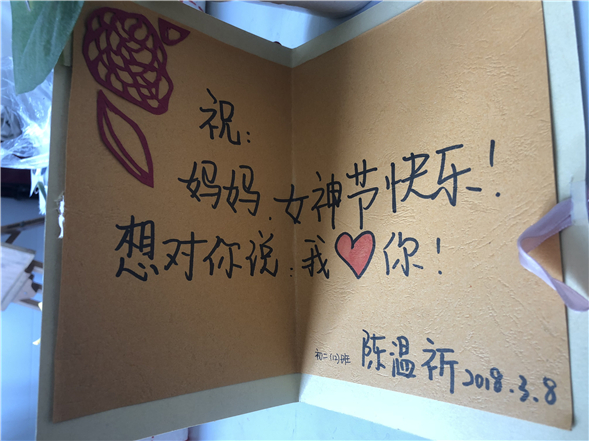 祝：
妈妈，女神节快乐！
想对你说：我❤你！
初二(12)班 陈温祈 2018.3.8